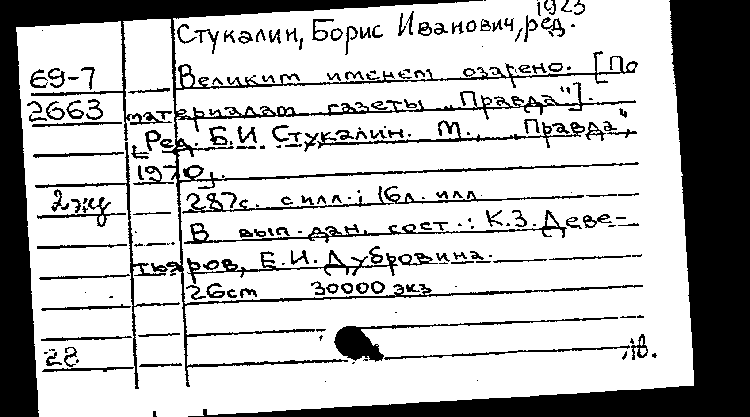 1923
Стукалин, Борис Иванович, ред.
69-7 Великим именем озарено. [По
2663 материалам газеты „Правда"].
[Ред. Б.И. Стукалин. М., „Правда",
1970].
2 экз 287с. с илл.; 16л. илл
В вып. дан. сост.: К.З. Деве-
тьяров, Е.И. Дубровина.
26см 30000 экз
28